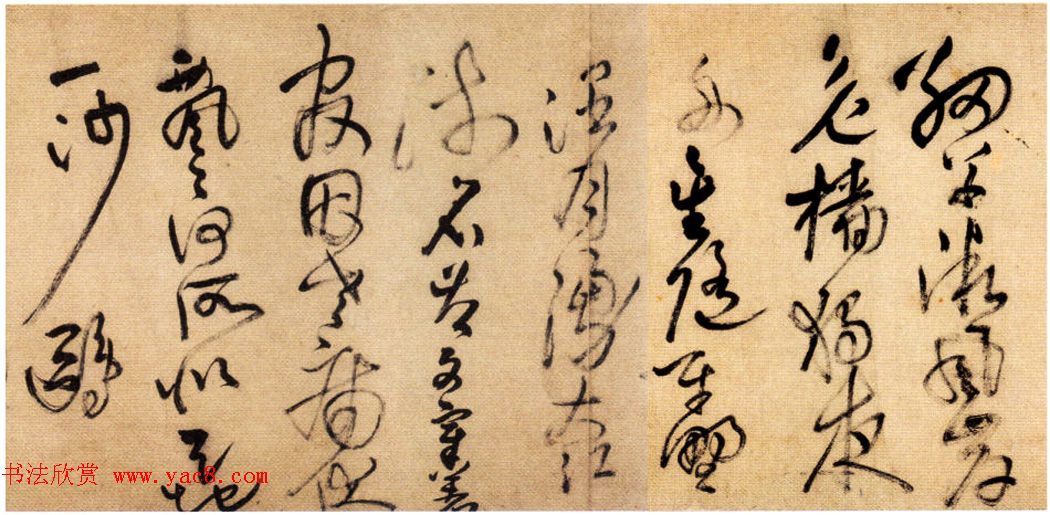 細草微風岸
危檣獨夜
舟星隨平野
濶月湧大江
流名豈文章著
官因老病休
飄々何所似天地
一沙鷗
书法欣赏 www.yac8.com